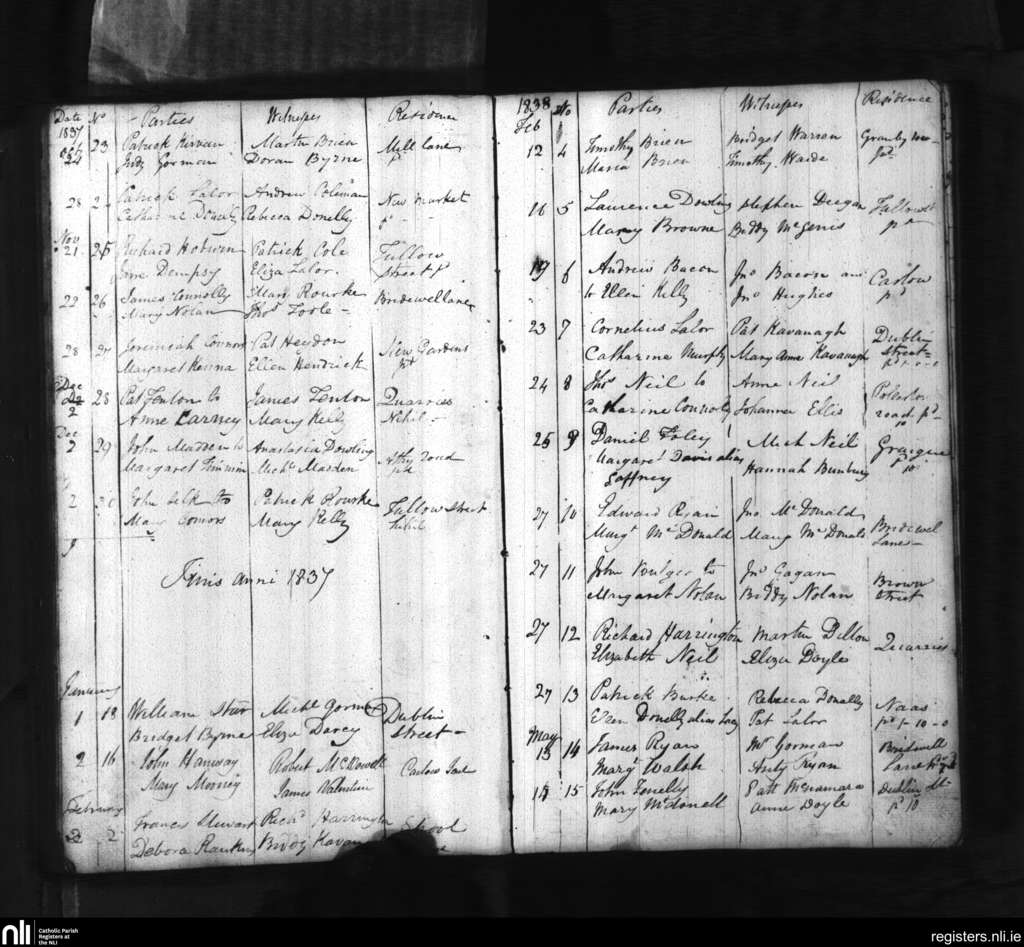 Date No Parties Witnesses Residence
1837
23 Patrick Kirwan Martin Brien Mill lane
24 Judy Gorman Doran Byrne pd
28 Patrick Lalor Andrew Coleman New Market
Catharine Rebecca Donelly pd
Nov
21 25 Richard Patrick Cole Tullow
Jane Dempsy Eliza Lalor Street pd
22 26 James Connolly Mary Rourke Bridewell lane
Mary Nolan Thos Toole
28 27 Jeremiah Connors Pat Heydon Gardens
Margaret Ellen Hendrick pd
Dec
2 28 Pat Fenlon to James Fenlon Quarries
Anne Carney Mary Kelly Nihil
Dec
2 29 John Madden to Anastasia Dowling Athy road
Margaret Michl Madden
2 30 John to Patrick Rourke Tullow Street
Mary Connors Mary Kelly Nihil
9
Finis anni 1837
January
1 18 William Starr Michl Dublin
Bridget Byrne Eliza Darcy Street
2 16 John Hanway Robert McDowell Carlow
Mary James
February
2 2 Francis Stewart Richd Harrington School
Debora Biddy
1838 No Parties Witnesses Residence
Feb
12 4 Timothy Brien Bridget Warren Granby row
Maria Brien Timothy Wade pd
16 5 Laurence Dowling Stephen Deegan Tullow St
Mary Browne Biddy McGenis pd
19 6 Andrew Bacon Jno Bacon an Carlow
to Ellen Kelly Jno Hughes pd
23 7 Cornelius Lalor Pat Kavanagh Dublin
Catharine Murphy Mary Anne Kavanagh Street
24 8 Thos Neil to Anne Neil
Catharine Connolly Johanna Ellis road pd
10
25 9 Daniel Foley Mich Neil Graigue
Margaret Davis alias Hannah Bunbury pd 10
Gaffney
27 10 Edward Ryan Jno McDonald Bridewel
Margt McDonald Mary McDonald Lane
27 11 John to Jno Gagan Brown
Margaret Nolan Biddy Nolan Street
27 12 Richard Harrington Martin Dillon Quarries
Elizabeth Neil Eliza Doyle
27 13 Patrick Burke Rebecca Donelly Naas
Ellen Donelly alias Lacy Pat Lalor pd 1-10-0
May
13 14 James Ryan Mr Gorman Bridewell
Margt Walsh Andy Ryan Lane
15 15 John Fenelly Patt McNamara Dublin St
Mary McDonell Anne Doyle pd 10
nli Catholic Parish
Registers at
the NLI
registers.nli.ie